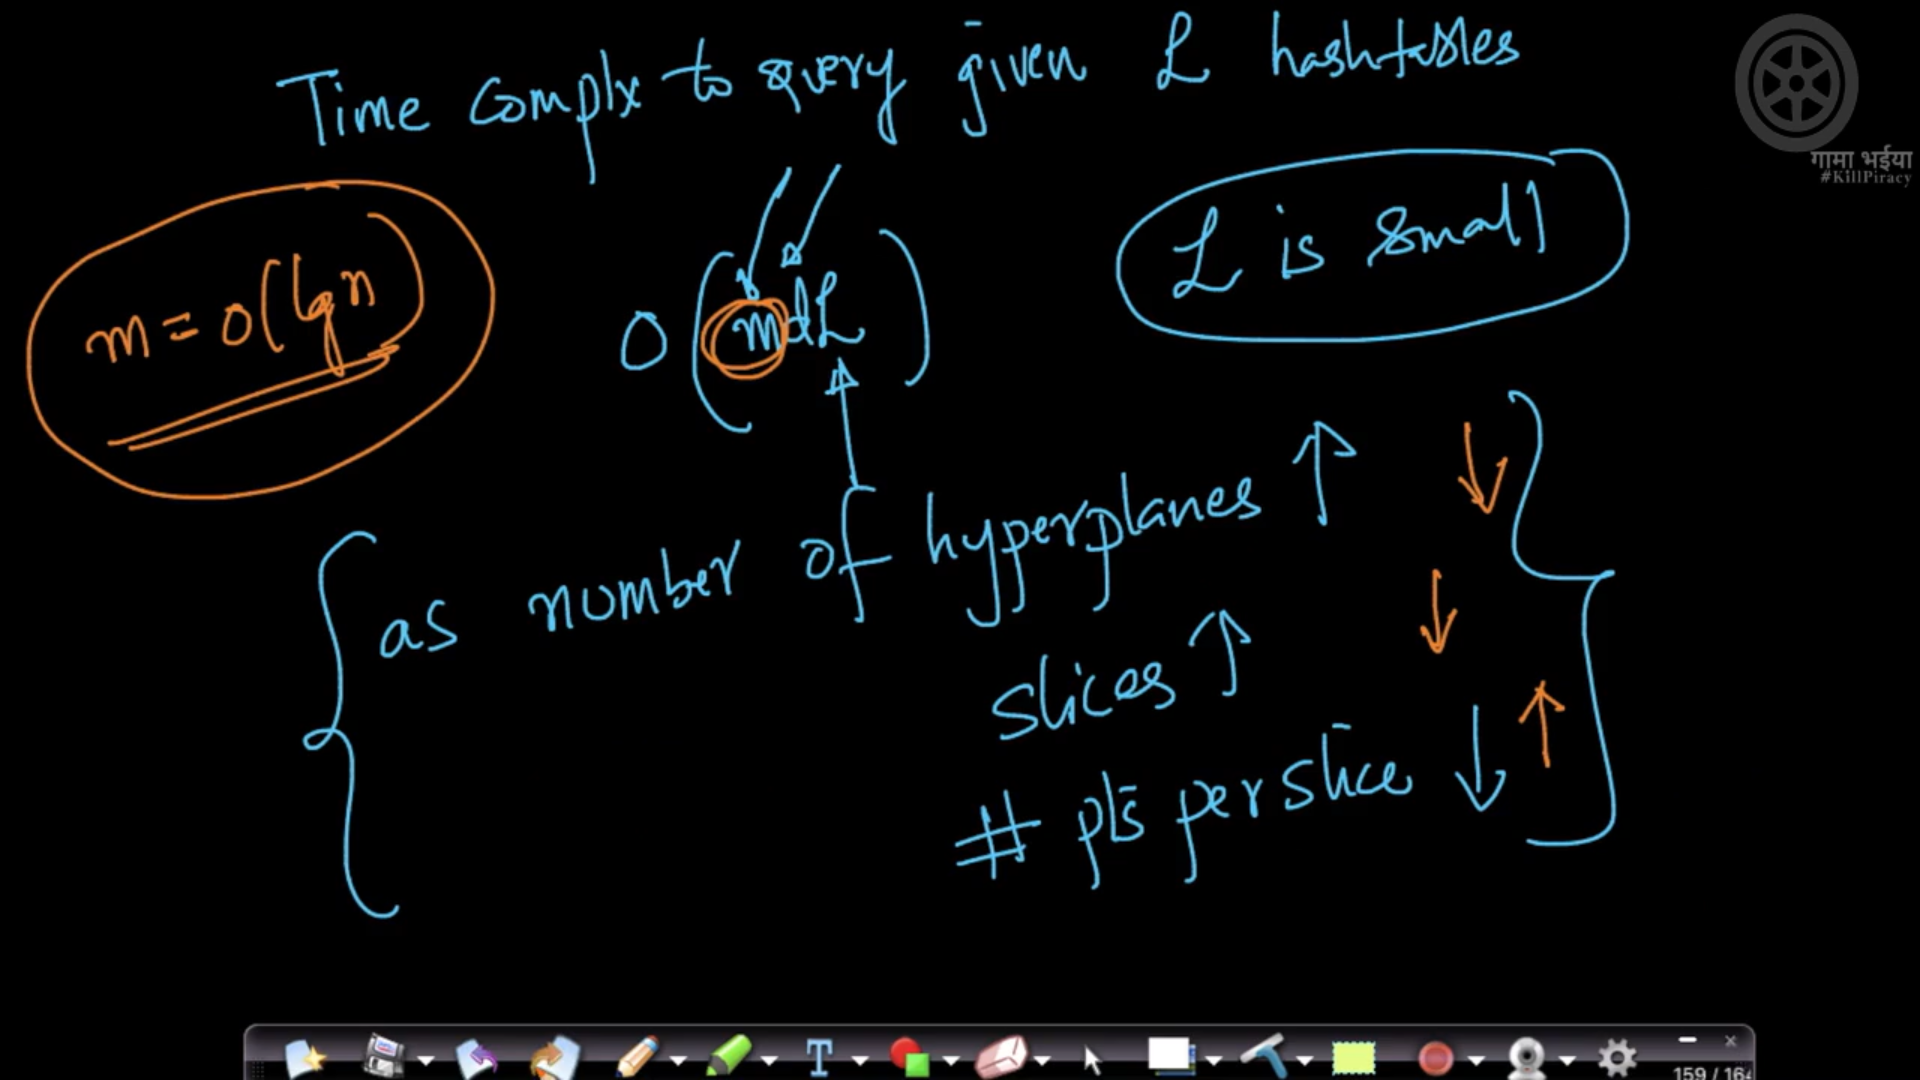 Time complx to query given L hashtables
गामा भईया
#KillPiracy
m = O(lg n)
O(mdL)
L is small
as number of hyperplanes ↑ ↓
slices ↑ ↓
# pts per slice ↓ ↑
T